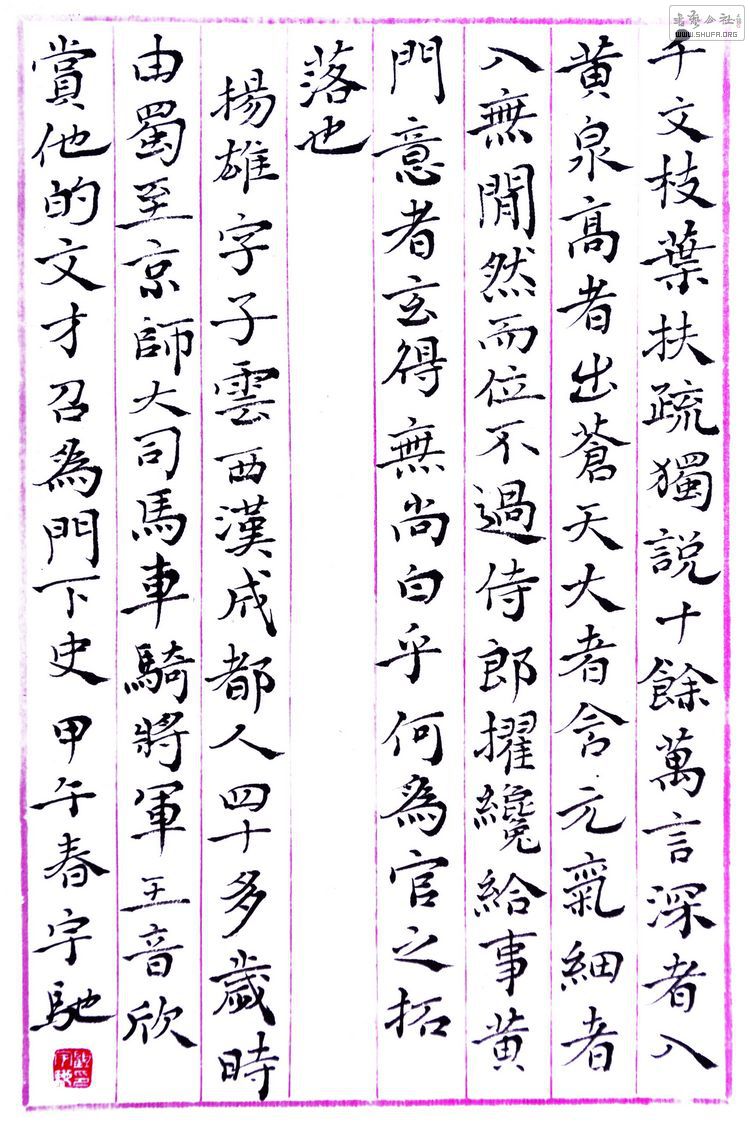 書藝公社
WWW.SHUFA.ORG
千文枝葉扶疏獨說十餘萬言深者入
黃泉高者出蒼天大者含元氣細者
入無間然而位不過侍郎擢纔給事黃
門意者玄得無尚白乎何為官之拓
落也
揚雄字子雲西漢成都人四十多歲時
由蜀至京師大司馬車騎將軍王音欣
賞他的文才召為門下史甲午春宇馳